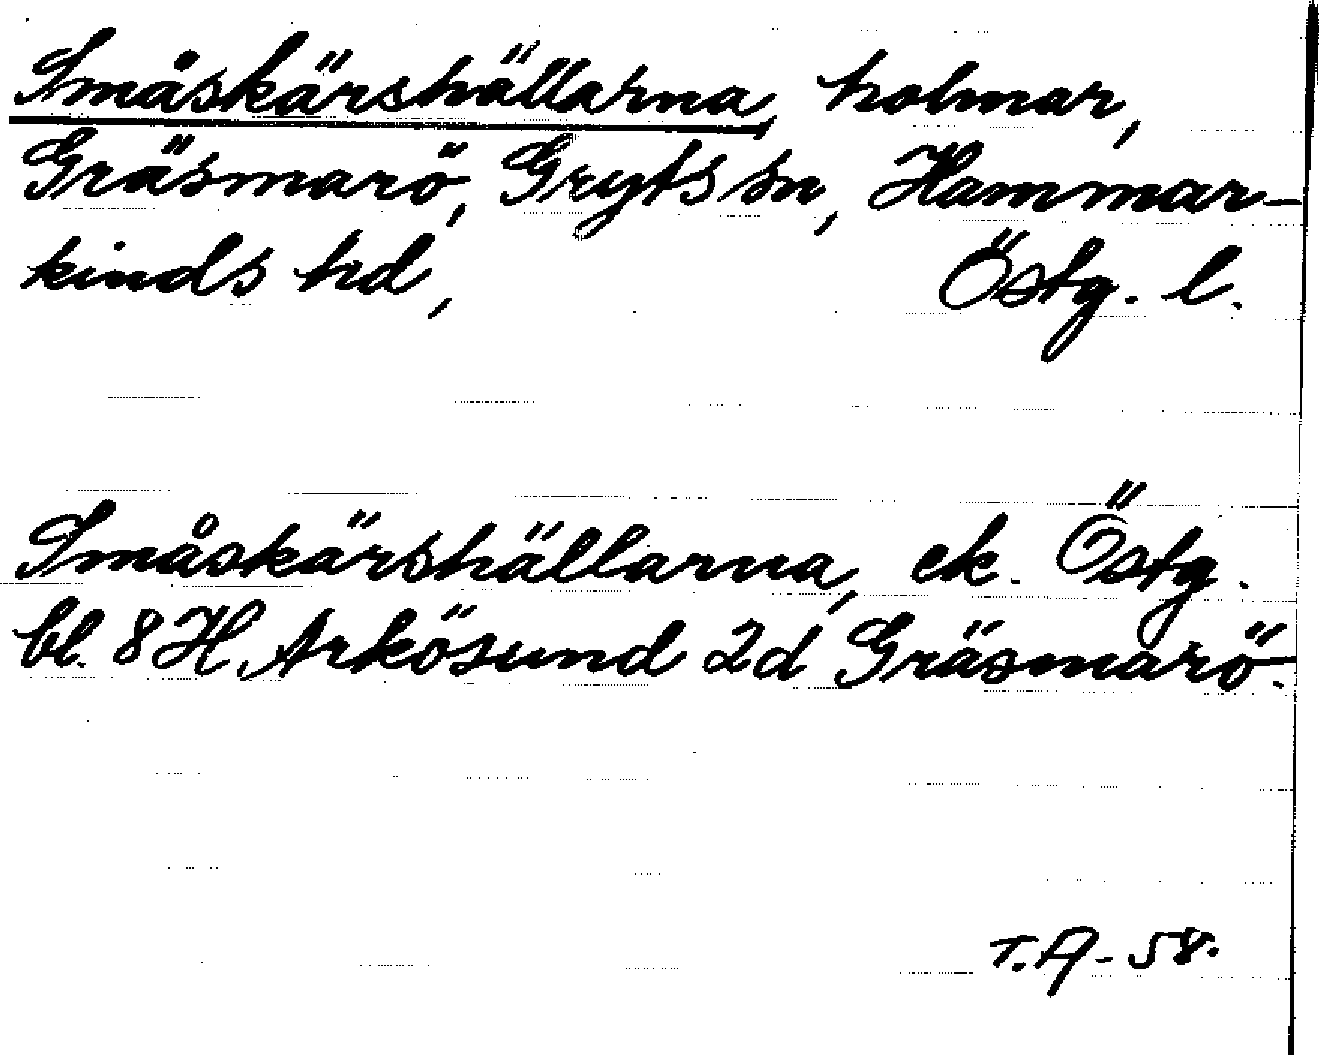 Småskärshällarna, holmar,
Gräsmarö, Gryts sn, Hammar-
kinds hd, Östg. l.
Småskärshällarna, ek. Östg.
bl. 8 H, Arkösund 2d Gräsmarö.
T.A-58.